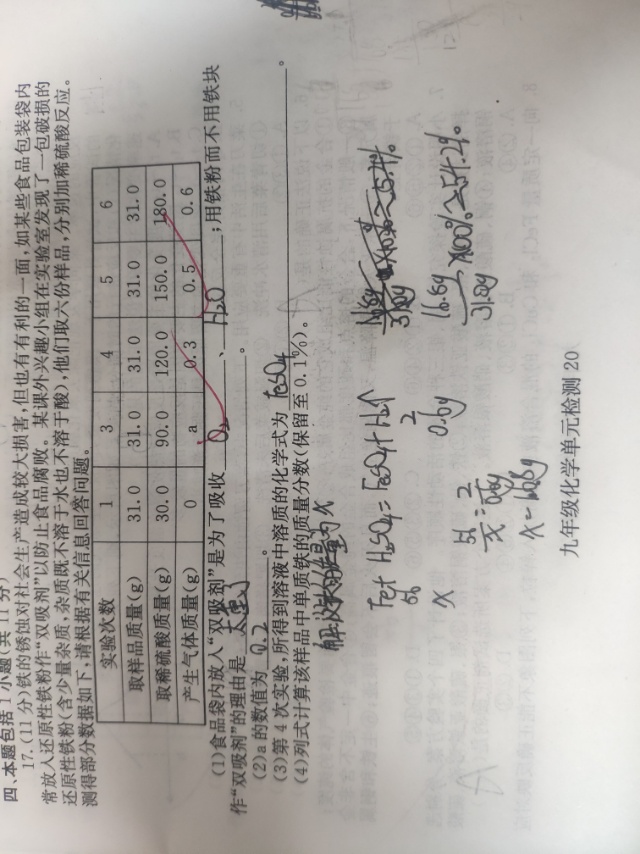 四、本题包括 1 小题(共 11 分)
17. (11 分)铁的锈蚀对社会生产造成较大损害,但也有有利的一面,如某些食品包装袋内
常放入还原性铁粉作“双吸剂”以防止食品腐败。某课外兴趣小组在实验室发现了一包破损的
还原性铁粉(含少量杂质,杂质既不溶于水也不溶于酸),他们取六份样品,分别加稀硫酸反应。
测得部分数据如下,请根据有关信息回答问题。
实验次数 1 3 4 5 6
取样品质量(g) 31.0 31.0 31.0 31.0 31.0
取稀硫酸质量(g) 30.0 90.0 120.0 150.0 180.0
产生气体质量(g) 0 a 0.3 0.5 0.6
(1)食品袋内放入“双吸剂”是为了吸收 O₂ 、 H₂O ;用铁粉而不用铁块
作“双吸剂”的理由是 。
(2)a 的数值为 0.2 。
(3)第 4 次实验,所得到溶液中溶质的化学式为 FeSO₄ 。
(4)列式计算该样品中单质铁的质量分数(保留至 0.1%)。
Fe+ H₂SO₄ = FeSO₄+H₂↑
56 2
x 0.6g
56/x = 2/0.6g
x = 16.8g
16.8g/31.0g ×100%≈54.2%
九年级化学单元检测 20